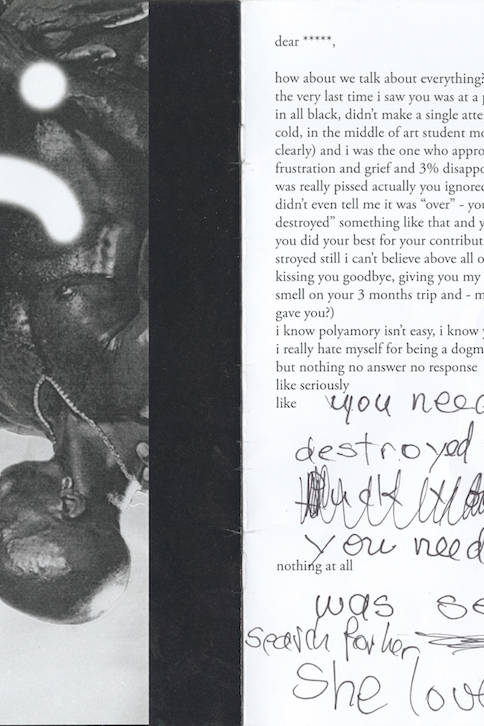 dear *****,
how about we talk about everything?
the very last time i saw you was at a p
in all black, didn't make a single atte
cold, in the middle of art student mo
clearly) and i was the one who appro
frustration and grief and 3% disappo
was really pissed actually you ignored
didn't even tell me it was “over” - you
destroyed” something like that and y
you did your best for your contribut
stroyed still i can't believe above all o
kissing you goodbye, giving you my
smell on your 3 months trip and - m
gave you?)
i know polyamory isn't easy, i know y
i really hate myself for being a dogm
but nothing no answer no response
like seriously
like you need
destroyed
you need
nothing at all
was se
search for her
She love